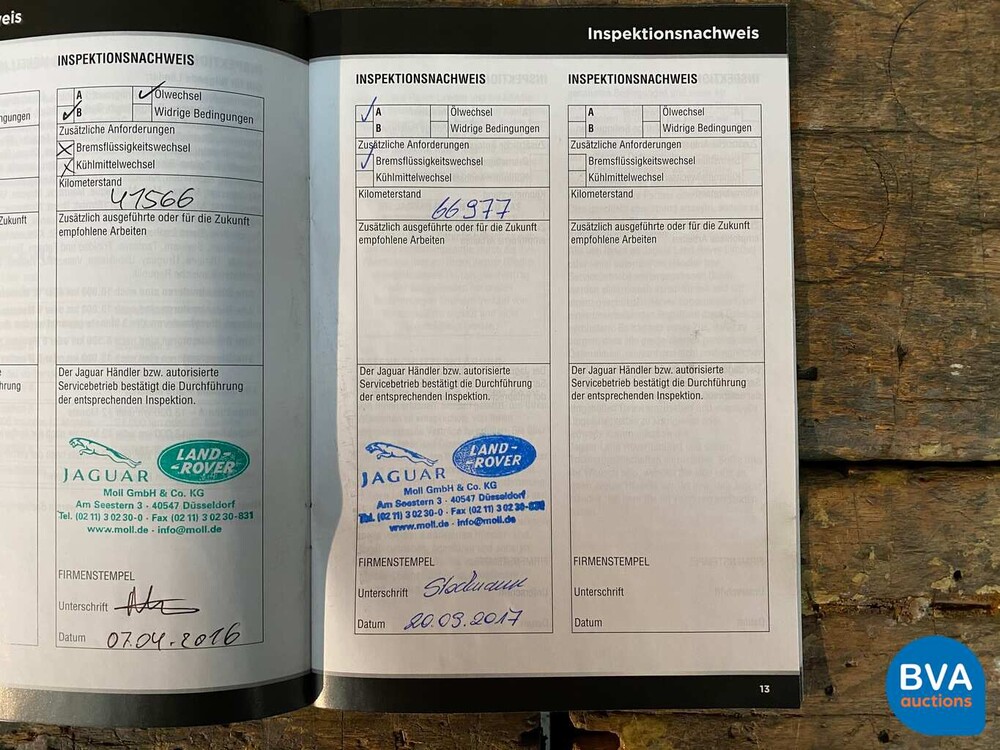 eis
ngungen
Zukunft
hrung
INSPEKTIONSNACHWEIS
A
Ölwechsel
B
Widrige Bedingungen
Zusätzliche Anforderungen
Bremsflüssigkeitswechsel
Kühlmittelwechsel
Kilometerstand
41566
Zusätzlich ausgeführte oder für die Zukunft
empfohlene Arbeiten
Der Jaguar Händler bzw. autorisierte
Servicebetrieb bestätigt die Durchführung
der entsprechenden Inspektion.
JAGUAR
LAND-
-ROVER
Moll GmbH & Co. KG
Am Seestern 3 - 40547 Düsseldorf
Tel. (02 11) 3 02 30-0 - Fax (02 11) 3 02 30-831
www.moll.de - info@moll.de
FIRMENSTEMPEL
Unterschrift
Datum 07.04.2016
Inspektionsnachweis
INSPEKTIONSNACHWEIS
A
Ölwechsel
B
Widrige Bedingungen
Zusätzliche Anforderungen
Bremsflüssigkeitswechsel
Kühlmittelwechsel
Kilometerstand
66977
Zusätzlich ausgeführte oder für die Zukunft
empfohlene Arbeiten
Der Jaguar Händler bzw. autorisierte
Servicebetrieb bestätigt die Durchführung
der entsprechenden Inspektion.
JAGUAR
LAND-
-ROVER
Moll GmbH & Co. KG
Am Seestern 3 - 40547 Düsseldorf
Tel. (02 11) 3 02 30-0 - Fax (02 11) 3 02 30-831
www.moll.de - info@moll.de
FIRMENSTEMPEL
Unterschrift
Datum 20.09.2017
INSPEKTIONSNACHWEIS
A
Ölwechsel
B
Widrige Bedingungen
Zusätzliche Anforderungen
Bremsflüssigkeitswechsel
Kühlmittelwechsel
Kilometerstand
Zusätzlich ausgeführte oder für die Zukunft
empfohlene Arbeiten
Der Jaguar Händler bzw. autorisierte
Servicebetrieb bestätigt die Durchführung
der entsprechenden Inspektion.
FIRMENSTEMPEL
Unterschrift
Datum
13
BVA
auctions